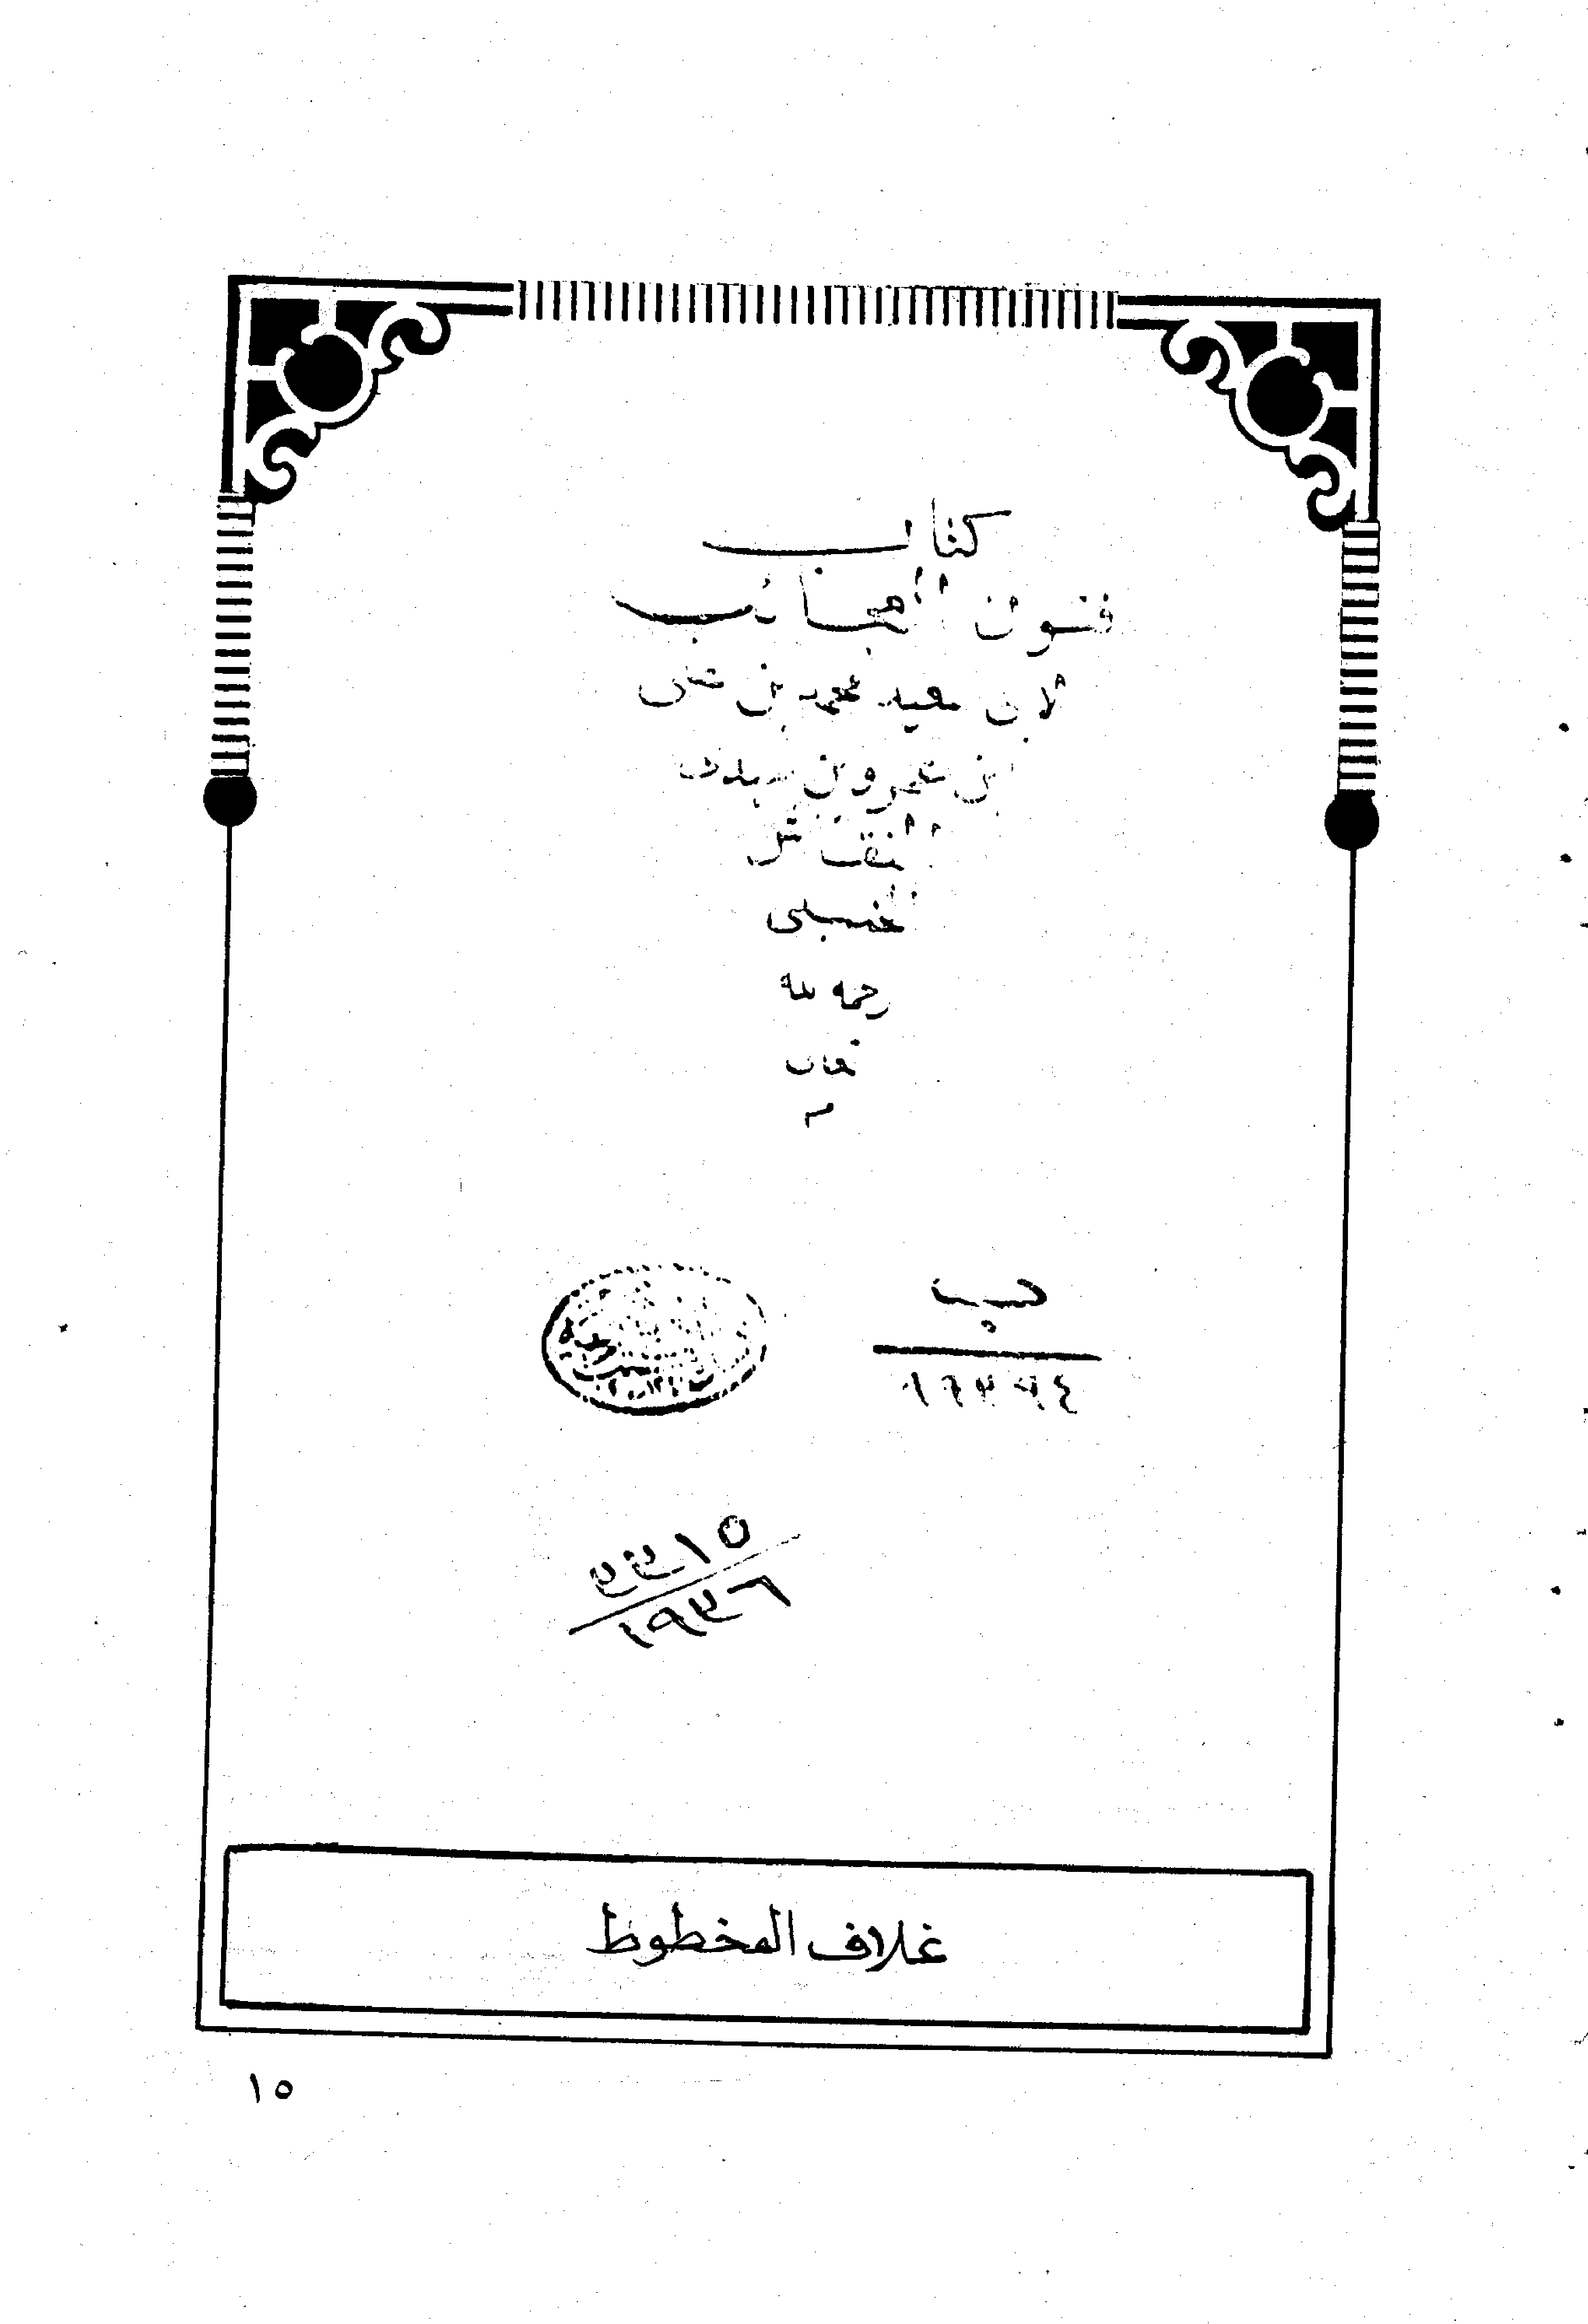 كتاب
فنون العجائب
لابى سعيد محمد بن على
ابن عمرو بن مهدى
النقاش
الحنبلى
رحمه الله
تعالى
م
١٩٣٦
غلاف المخطوط
١٥